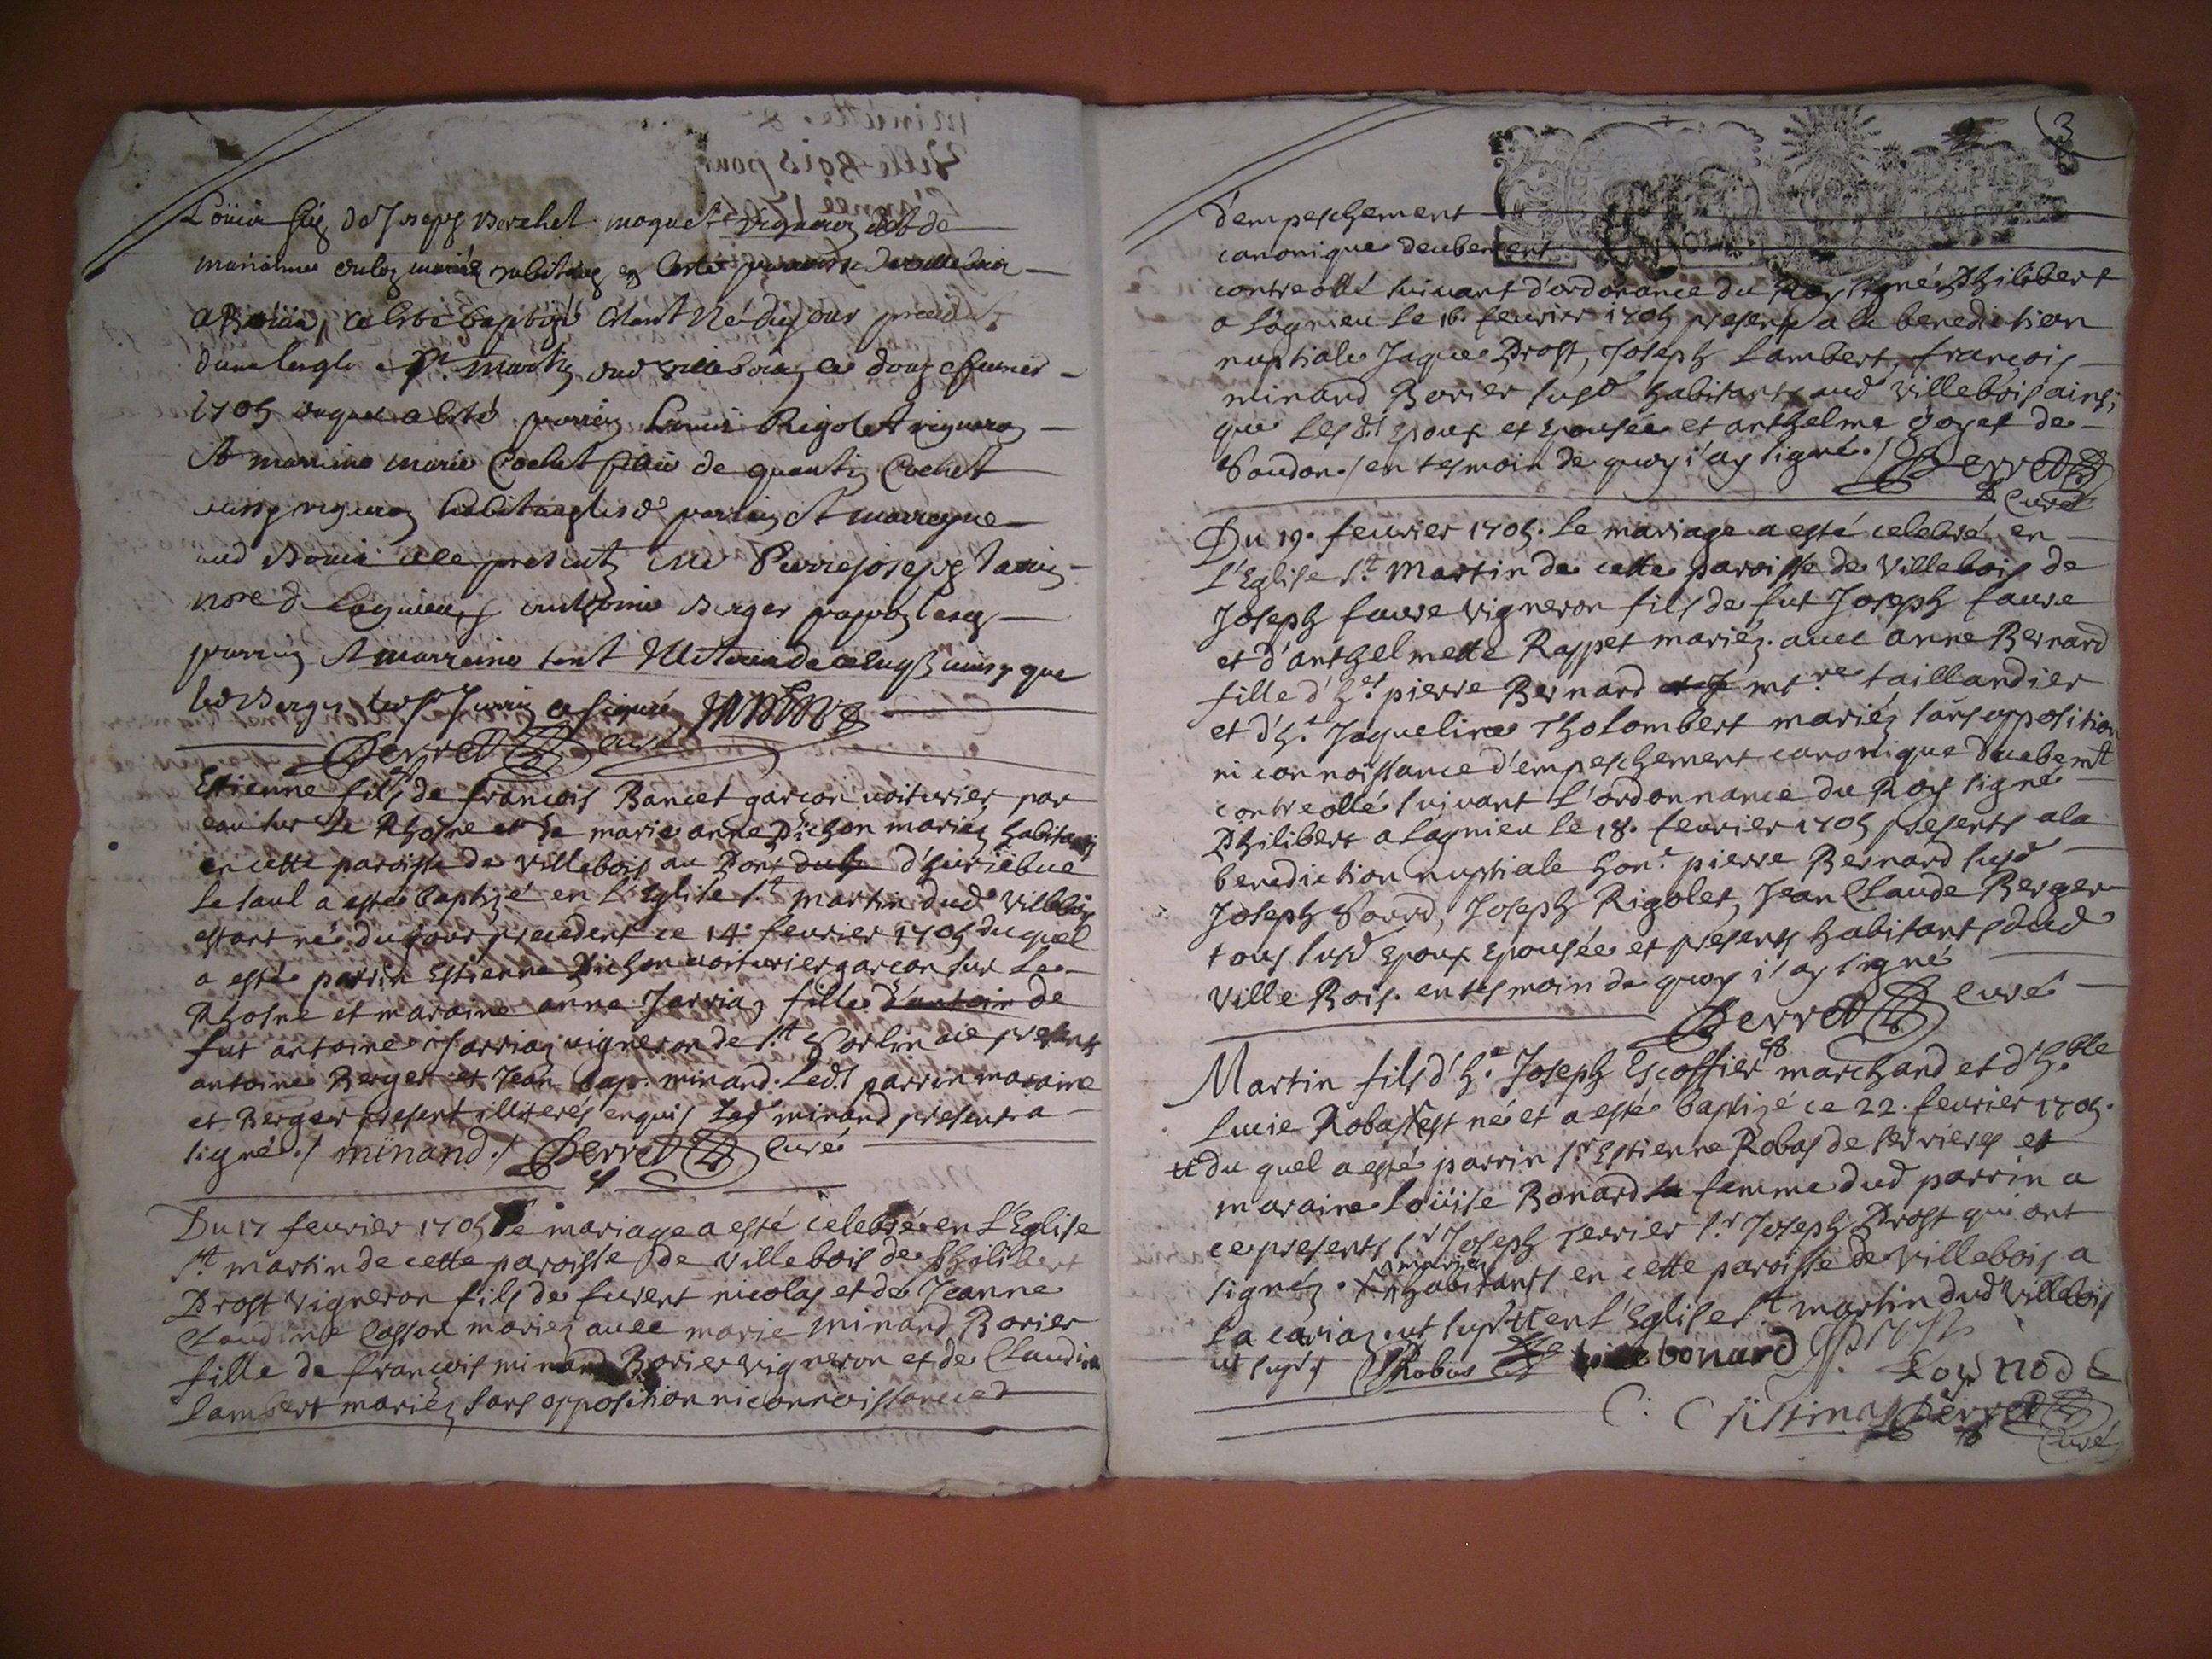 Loüis filz de Joseph Berchet moguet vigneron et de
marianne mariez habitans en cette paroisse de villebois
a Bouis, a esté baptizé estant né du jour precedent
dans leglise St. Martin dud villebois ce douze feuvrier
1705 duquel a esté parrin Louis Rigolet vigneron
et marrine marie Crochet fille de quantin Crochet
aussy vigneron habitants lesd parrin et marreyne
aud Bouis a ce presents Me Pierre joseph Jamin
nore de Lagnieu, anthoine Berger lesq
parrin et marreine sont illiterez de ce enquis ainsy que
led Berger led Sr Jamin a signé
Perret curé
Estienne fils de francois Bancet garcon voiturier par
eau sur Le Rhosne et de marie anne Dichon mariez habitants
en cette paroisse de Villebois au Pont d'huriebue
Le saul a esté Baptizé en L'Eglise St. martin dud villebois
estant né du jour precedent ce 14e feurier 1705 du quel
a esté parrin Estienne Dichon voiturier garcon sur Le
Rhosne et maraine anne Jarriaz fille d'antoin de
fut antoine Jarriaz vigneron de St. Sorlin a ce presents
antoine Berger et Jean bap. minand. Led. parrin maraine
et Berger present illiterés enquis Led minand present a
signé./ minand./ Perret Curé
Du 17 feurier 1705 Le mariage a esté celebré en L'Eglise
St. martin de cette paroisse de villebois de Philibert
Drost vigneron fils de furent nicolas et de Jeanne
Claudine Casson mariez auec marie minand Borier
fille de francois minand Borier vigneron et de Claudine
Lambert mariez sans opposition ni connoissance
3
d'empeschement
canonique deubement
controollé suiuant d'ordonance du Roy signé Philibert
a Lagnieu le 16. feurier 1705 presents a la benediction
nuptiale Jaque Drost, Joseph Lambert, francois
minand Borier susd habitants aud Villebois ainsi
que Lesd. Epoux et Epousée et anthelme goyet de
Soudon./ en tesmoin de quoy i'ay signé./ Perret
Curé
Du 19. feurier 1705. Le mariage a esté celebré en
L'Eglise St. Martin de cette paroisse de Villebois de
Joseph faure vigneron fils de fut Joseph faure
et d'anthelmette Rappet mariez. auec anne Bernard
fille d'het pierre Bernard mtre taillandier
et d'h. Jaqueline Tholombert mariez sans opposition
ni connoissance d'empeschement canonique duebemt
controollé suiuant L'ordonnance du Roy signé
Philibert a Lagnieu le 18. feurier 1705 presents a la
benediction nuptiale hon. pierre Bernard susd
Joseph Sourd, Joseph Rigolet, Jean Claude Berger
tous susd Epoux Epousée et presents habitants dud
Ville Bois. en tesmoin de quoy i'ay signé
Perret Curé
Martin fils d'h. Joseph Escoffier marchand et d'hble
Lucie Robas est né et a esté baptizé ce 22. feurier 1705.
du quel a esté parrin Sr Estienne Robas de Serrieres et
maraine Loüise Bonard femme dud parrin a
ce presents Sr Joseph Terrier Sr. Joseph Drost qui ont
signéz. mariez habitants en cette paroisse de villebois a
La cariaz. ut supr en L'Eglise St martin dud Villebois
ut supr. Robas bonard
Loynod
C: Cristinas Perret
Curé